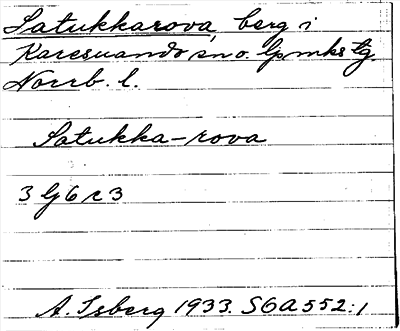 Satukkarova, berg i
Karesuando sno. lpmks tg.
Norrb. l.
Satukka-rova
3 lj 6 c 3
A. Isberg 1933. SOA 552:1